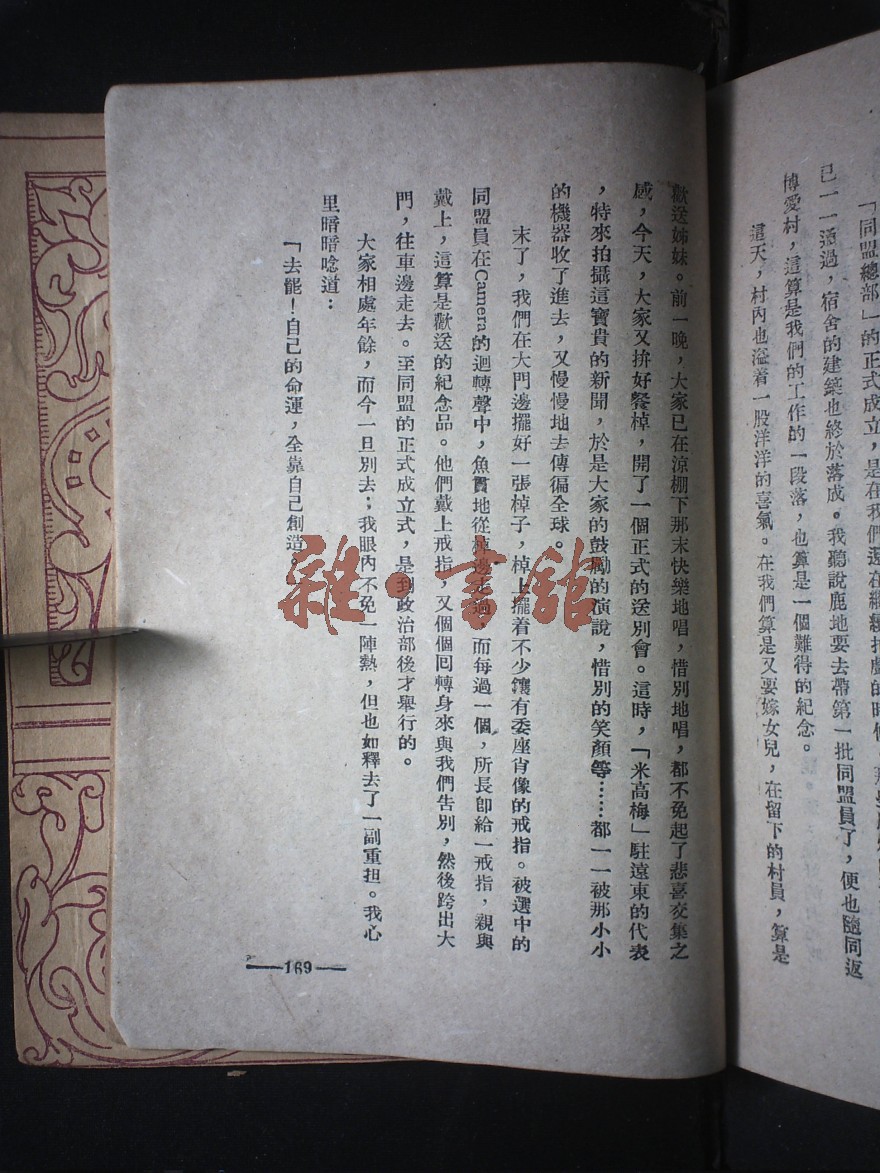 「同盟總部」的正式成立，是在我們還在繼續
己一一通過，宿舍的建築也終於落成。我聽說鹿地要去帶第一批同盟員了，便也隨同返
博愛村，這算是我們的工作的一段落，也算是一個難得的紀念。
這天，村內也溢着一股洋洋的喜氣。在我們算是又要嫁女兒，在留下的村員，算是
歡送姊妹。前一晚，大家已在涼棚下那末快樂地唱，惜別地唱，都不免起了悲喜交集之
感，今天，大家又拚好餐棹，開了一個正式的送別會。這時，「米高梅」駐遠東的代表
，特來拍攝這寶貴的新聞，於是大家的鼓勵的演說，惜別的笑顏等……都一一被那小小
的機器收了進去，又慢慢地去傳徧全球。
末了，我們在大門邊擺好一張棹子，棹上擺着不少鑲有委座肖像的戒指。被選中的
同盟員在Camera的迴轉聲中，魚貫地從棹邊走過，而每過一個，所長卽給一戒指，親與
戴上，這算是歡送的紀念品。他們戴上戒指，又個個囘轉身來與我們告別，然後跨出大
門，往車邊走去。至同盟的正式成立式，是到政治部後才舉行的。
大家相處年餘，而今一旦別去；我眼內不免一陣熱，但也如釋去了一副重担。我心
里暗暗唸道：
「去罷！自己的命運，全靠自己創造。」
—169—
雜·書館